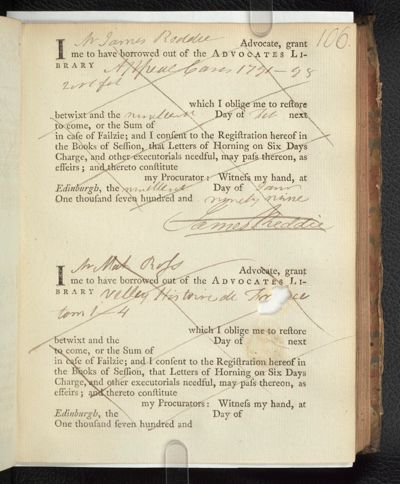 106.
I Mr James Reddie Advocate, grant
me to have borrowed out of the ADVOCATES LI-
BRARY Appeal Cases 1791–98
which I oblige me to reſtore
betwixt and the nineteenth Day of Feb next
to come, or the Sum of
in caſe of Failzie; and I conſent to the Regiſtration hereof in
the Books of Seſſion, that Letters of Horning on Six Days
Charge, and other executorials needful, may paſs thereon, as
effeirs; and thereto conſtitute
my Procurator: Witneſs my hand, at
Edinburgh, the nineteenth Day of Janr
One thouſand ſeven hundred and ninety nine
James Reddie
I Mr Roſs Advocate, grant
me to have borrowed out of the ADVOCATES LI-
BRARY Velley Histoire de France
tom 1 – 4
which I oblige me to reſtore
betwixt and the Day of next
to come, or the Sum of
in caſe of Failzie; and I conſent to the Regiſtration hereof in
the Books of Seſſion, that Letters of Horning on Six Days
Charge, and other executorials needful, may paſs thereon, as
effeirs; and thereto conſtitute
my Procurators: Witneſs my hand, at
Edinburgh, the Day of
One thouſand ſeven hundred and